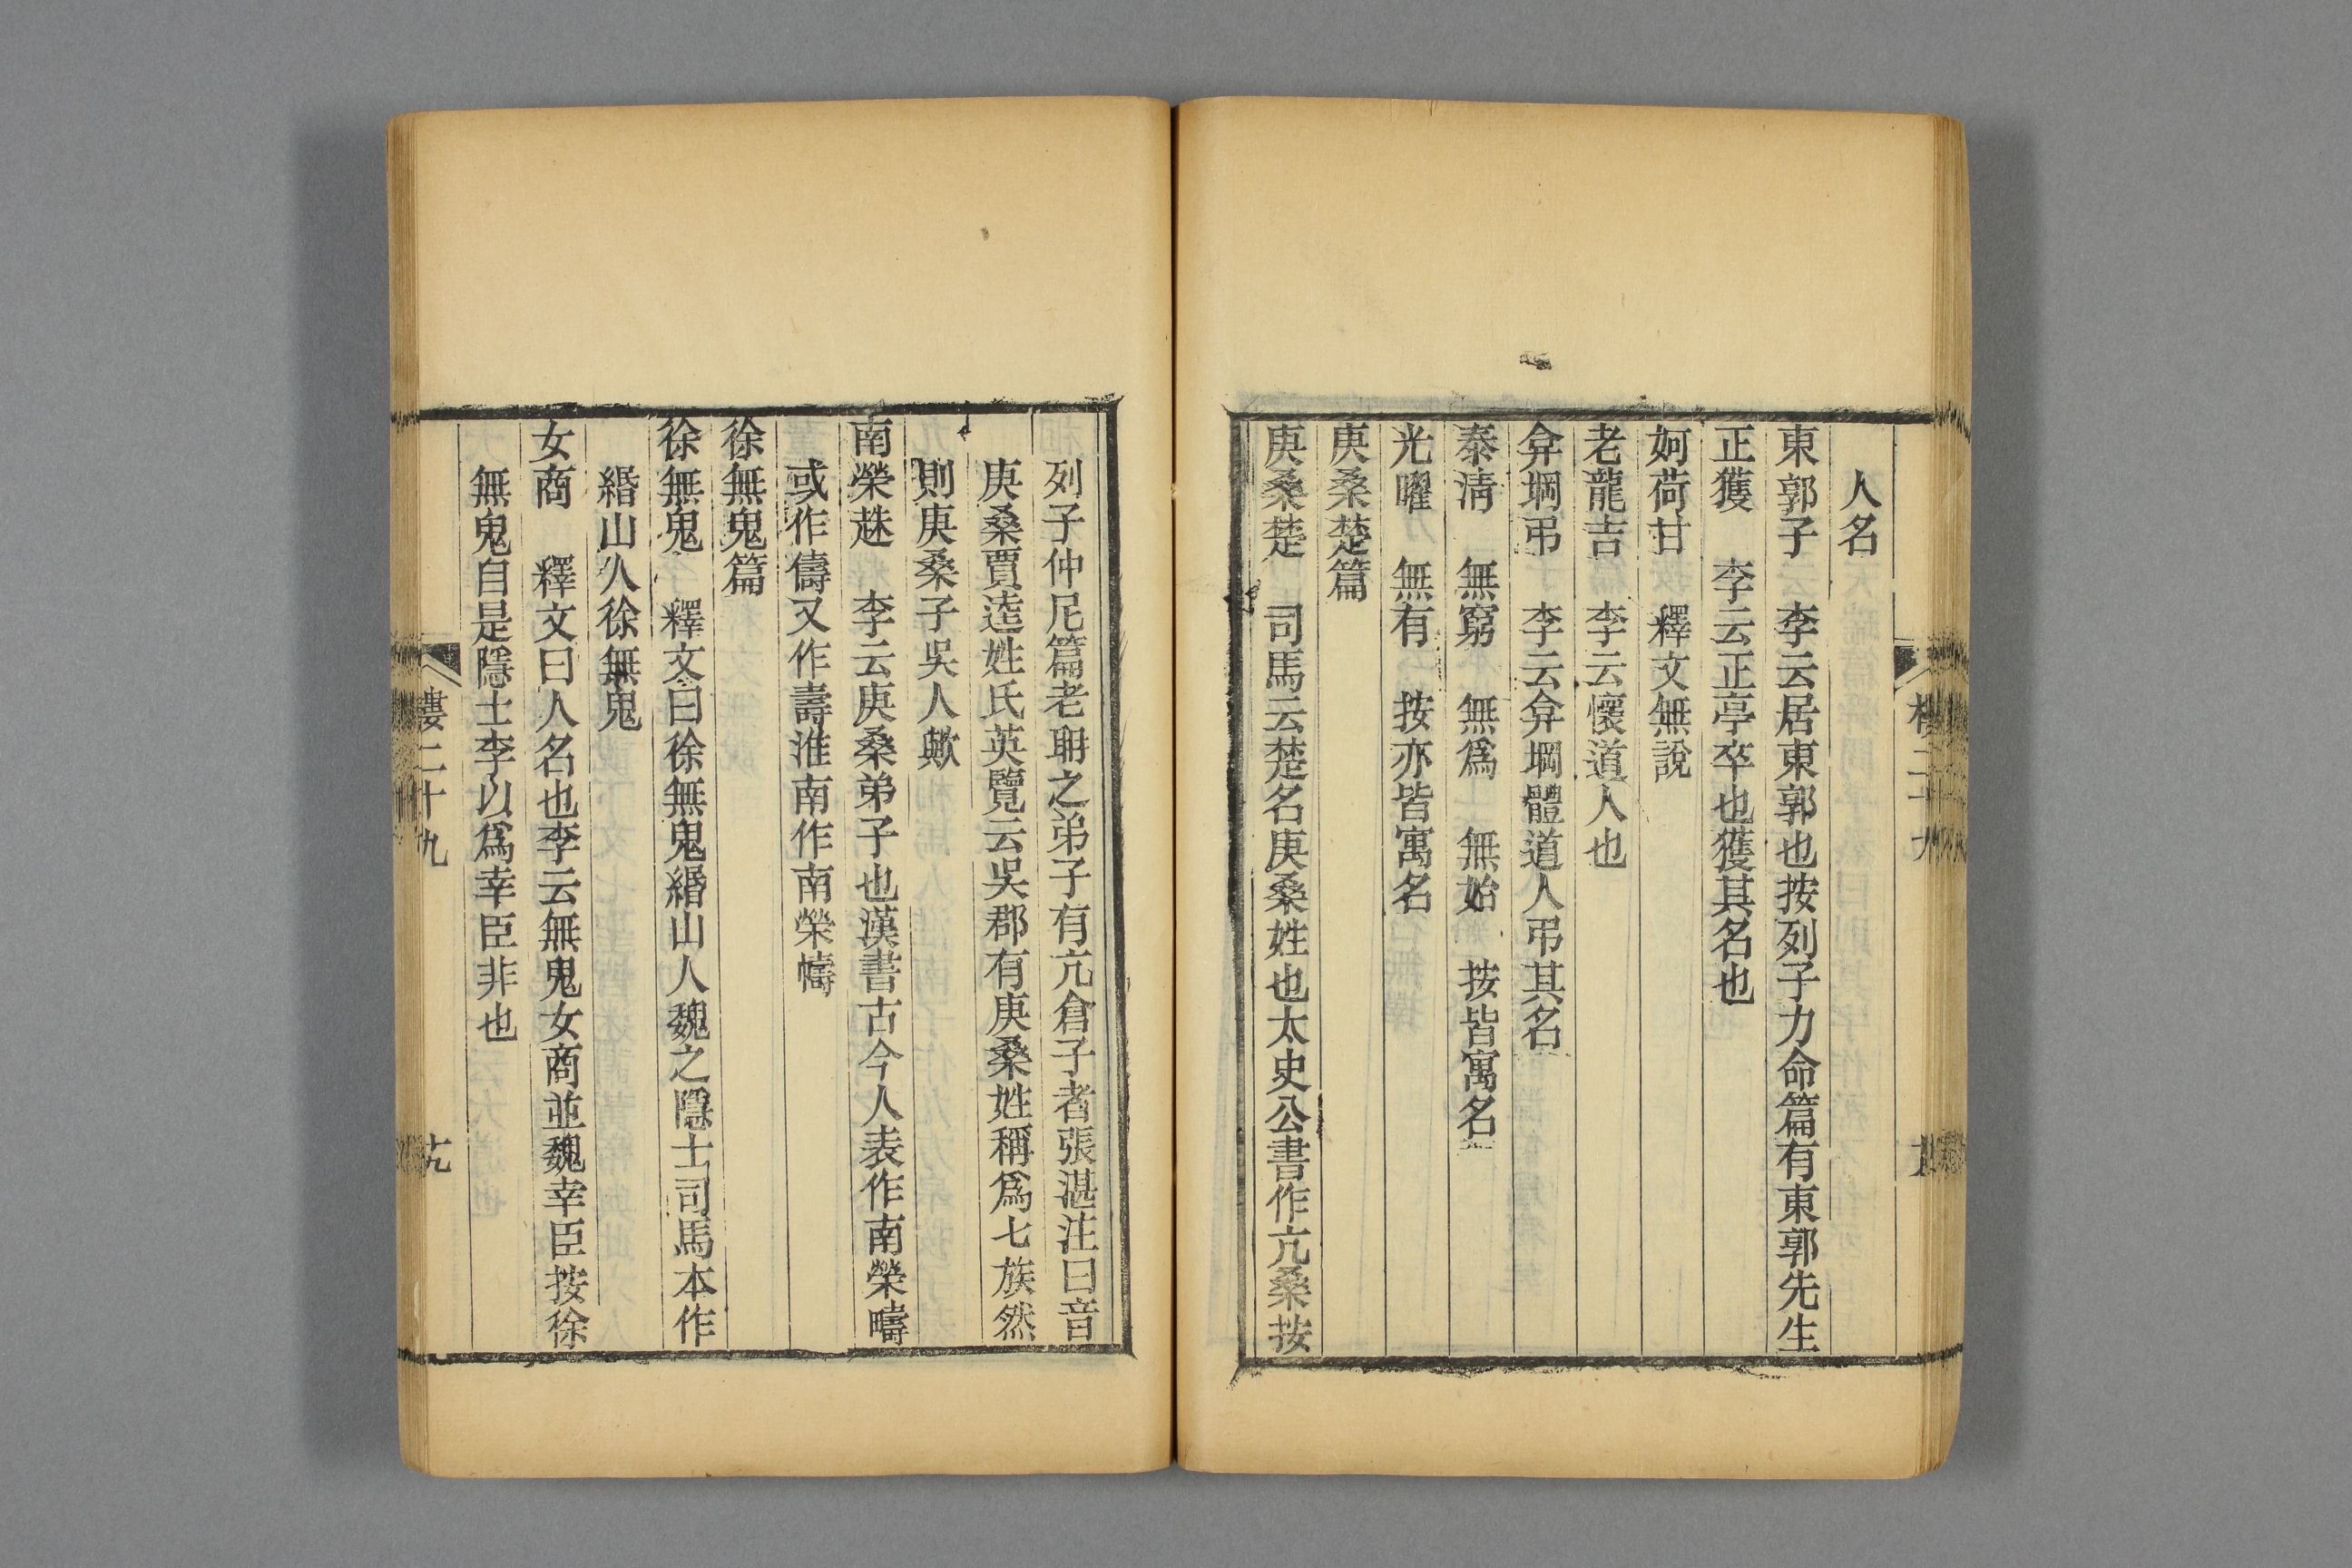 人名
東郭子　李云居東郭也按列子力命篇有東郭先生
正獲　李云正亭卒也獲其名也
妸荷甘　釋文無說
老龍吉　李云懷道人也
弇堈弔　李云弇堈體道人弔其名
泰清　無窮　無爲　無始　按皆寓名
光曜　無有　按亦皆寓名
庚桑楚篇
庚桑楚　司馬云楚名庚桑姓也太史公書作亢桑按
列子仲尼篇老耼之弟子有亢倉子者張湛注曰音
庚桑賈逵姓氏英覽云吳郡有庚桑姓稱爲七族然
則庚桑子吳人歟
南榮趎　李云庚桑弟子也漢書古今人表作南榮疇
或作儔又作壽淮南作南榮幬
徐無鬼篇
徐無鬼　釋文曰徐無鬼緡山人魏之隱士司馬本作
緡山人徐無鬼
女商　釋文曰人名也李云無鬼女商並魏幸臣按徐
無鬼自是隱士李以爲幸臣非也
二十九